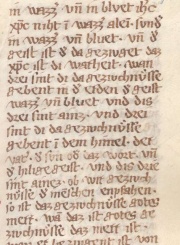 in wazz̄. vn̄ in blvet Ihc
xpc niht in wazz̄ alei. svnd̾
in wazz̄ vn̄ blvet. vn̄ d̾
geist ist d̾ da gezivget daz
xpc ist di warheit. wan
drei sint di da gezivchnvsse
gebent in d̾ erden d̾ geist
wazz̄ vn̄ blvet vnd dis
drei sint ainz. vnd dis
drei sint di da gezivchnvsse
gebent ī dem himel. der
vat̾. d̾ svn od̾ daz wort. vn̄
d̾ hilig geist. vnd dis drei
sint ainez. ob wir gezivch
nvsse d̾ menschen enpfahen.
so ist daz gezivchnvsse gotes
merr. wā daz ist gotes ge
zivchnvsse daz merr ist.